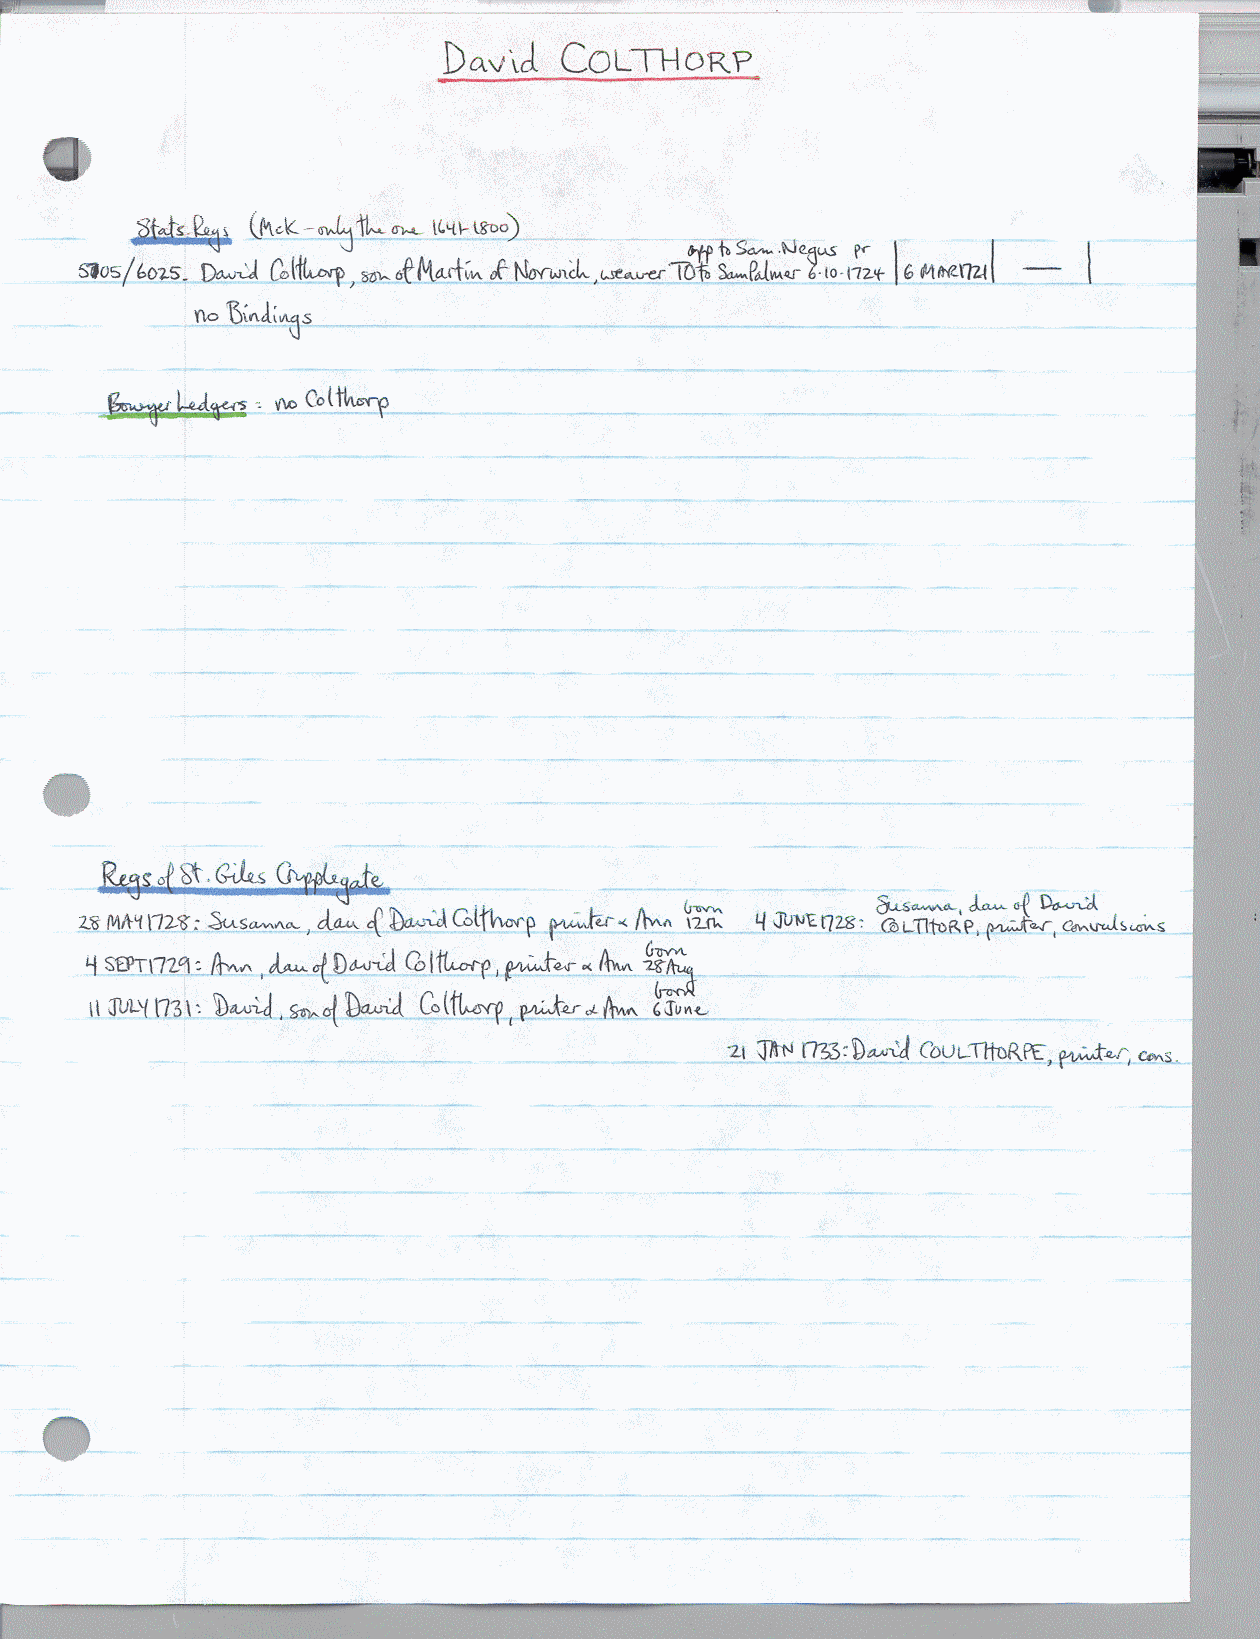 David COLTHORP
Stats Regs (McK - only the one 1641-1800)
app to Sam. Negus pr
5705/6025. David Colthorp, son of Martin of Norwich, weaver TO to Sam Palmer 6.10.1724 | 6 MAR 1721 | — |
no Bindings
Bowyer Ledgers: no Colthorp
Regs of St. Giles Cripplegate
born Susanna, dau of David
28 MAY 1728: Susanna, dau of David Colthorp printer & Ann 12th 4 JUNE 1728: COLTHORP, printer, convulsions
born
4 SEPT 1729: Ann, dau of David Colthorp, printer & Ann 28 Aug
born
11 JULY 1731: David, son of David Colthorp, printer & Ann 6 June
21 JAN 1733: David COULTHORPE, printer, cons.